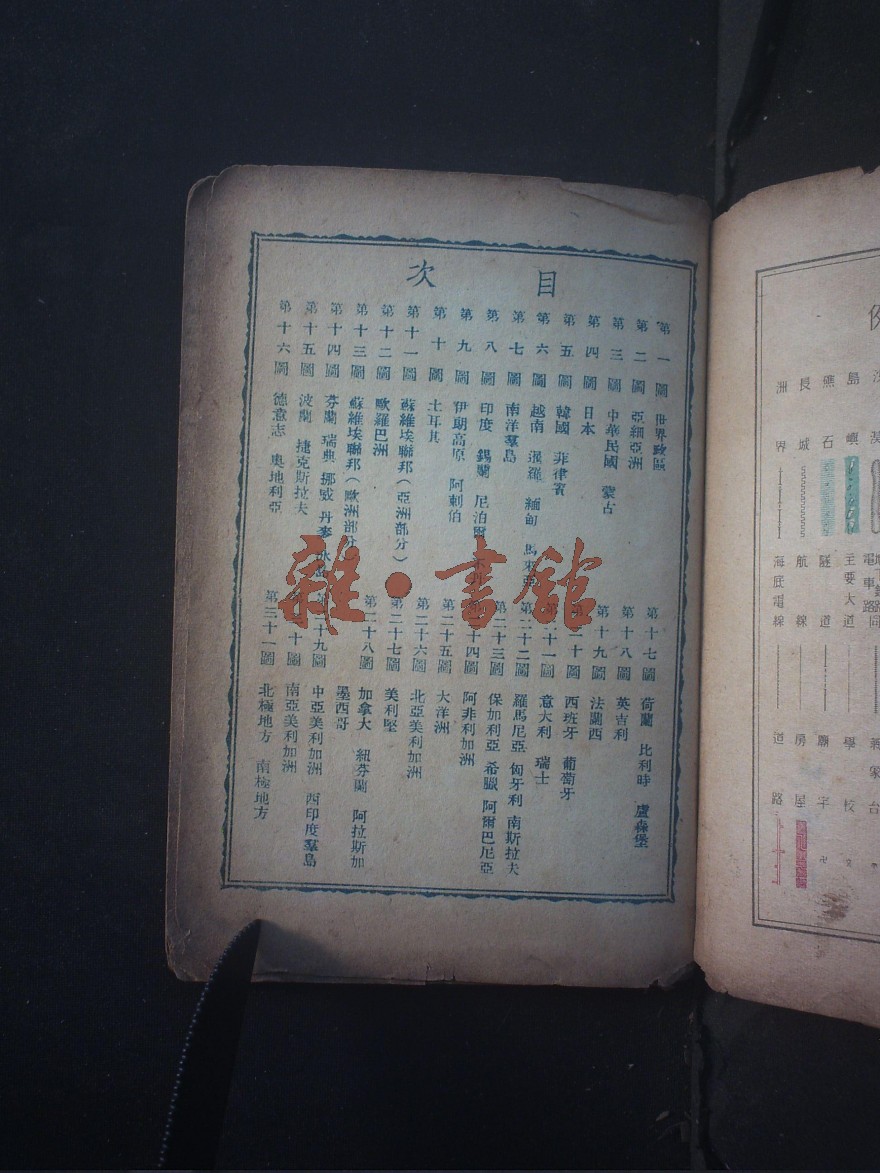 目次
第一圖 世界政區
第二圖 亞細亞洲
第三圖 中華民國 蒙古
第四圖 日本
第五圖 韓國 菲律賓
第六圖 越南 暹羅 緬甸 馬來亞
第七圖 南洋羣島
第八圖 印度 錫蘭 尼泊爾 不丹
第九圖 伊朗高原 阿剌伯
第十圖 土耳其
第十一圖 蘇維埃聯邦(亞洲部分)
第十二圖 歐羅巴洲
第十三圖 蘇維埃聯邦(歐洲部分)
第十四圖 芬蘭 瑞典 挪威 丹麥 冰島
第十五圖 波蘭 捷克斯拉夫
第十六圖 德意志 奧地利亞
第十七圖 荷蘭 比利時 盧森堡
第十八圖 英吉利
第十九圖 法蘭西
第二十圖 西班牙 葡萄牙
第二十一圖 意大利 瑞士
第二十二圖 羅馬尼亞 匈牙利 南斯拉夫
第二十三圖 保加利亞 希臘 阿爾巴尼亞
第二十四圖 阿非利加洲
第二十五圖 大洋洲
第二十六圖 北亞美利加洲
第二十七圖 美利堅
第二十八圖 加拿大 紐芬蘭 阿拉斯加
墨西哥
第二十九圖 中亞美利加洲 西印度羣島
第三十圖 南亞美利加洲
第三十一圖 北極地方 南極地方
雜·書館
島嶼 主要大道 學校
礁石 隧道 廟宇
長城 航線 房屋
洲界 海底電線 道路